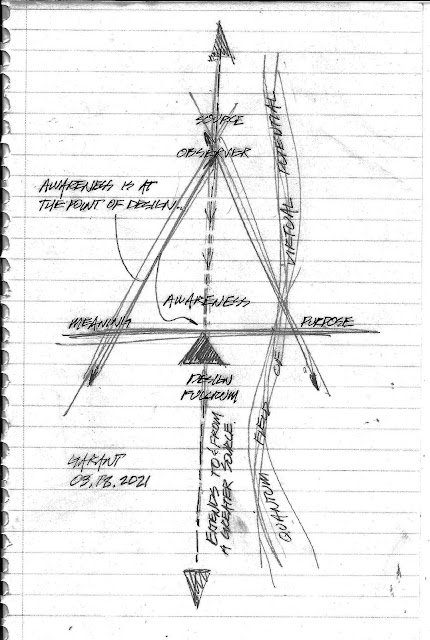 SOURCE
OBSERVER
AWARENESS IS AT
THE POINT OF DESIGN.
AWARENESS
MEANING
PURPOSE
DESIGN
FULCRUM
EXTENDS TO & FROM
A GREATER SOURCE.
QUANTUM FIELD OF VIRTUAL POTENTIAL
GARANT
03.18.2021